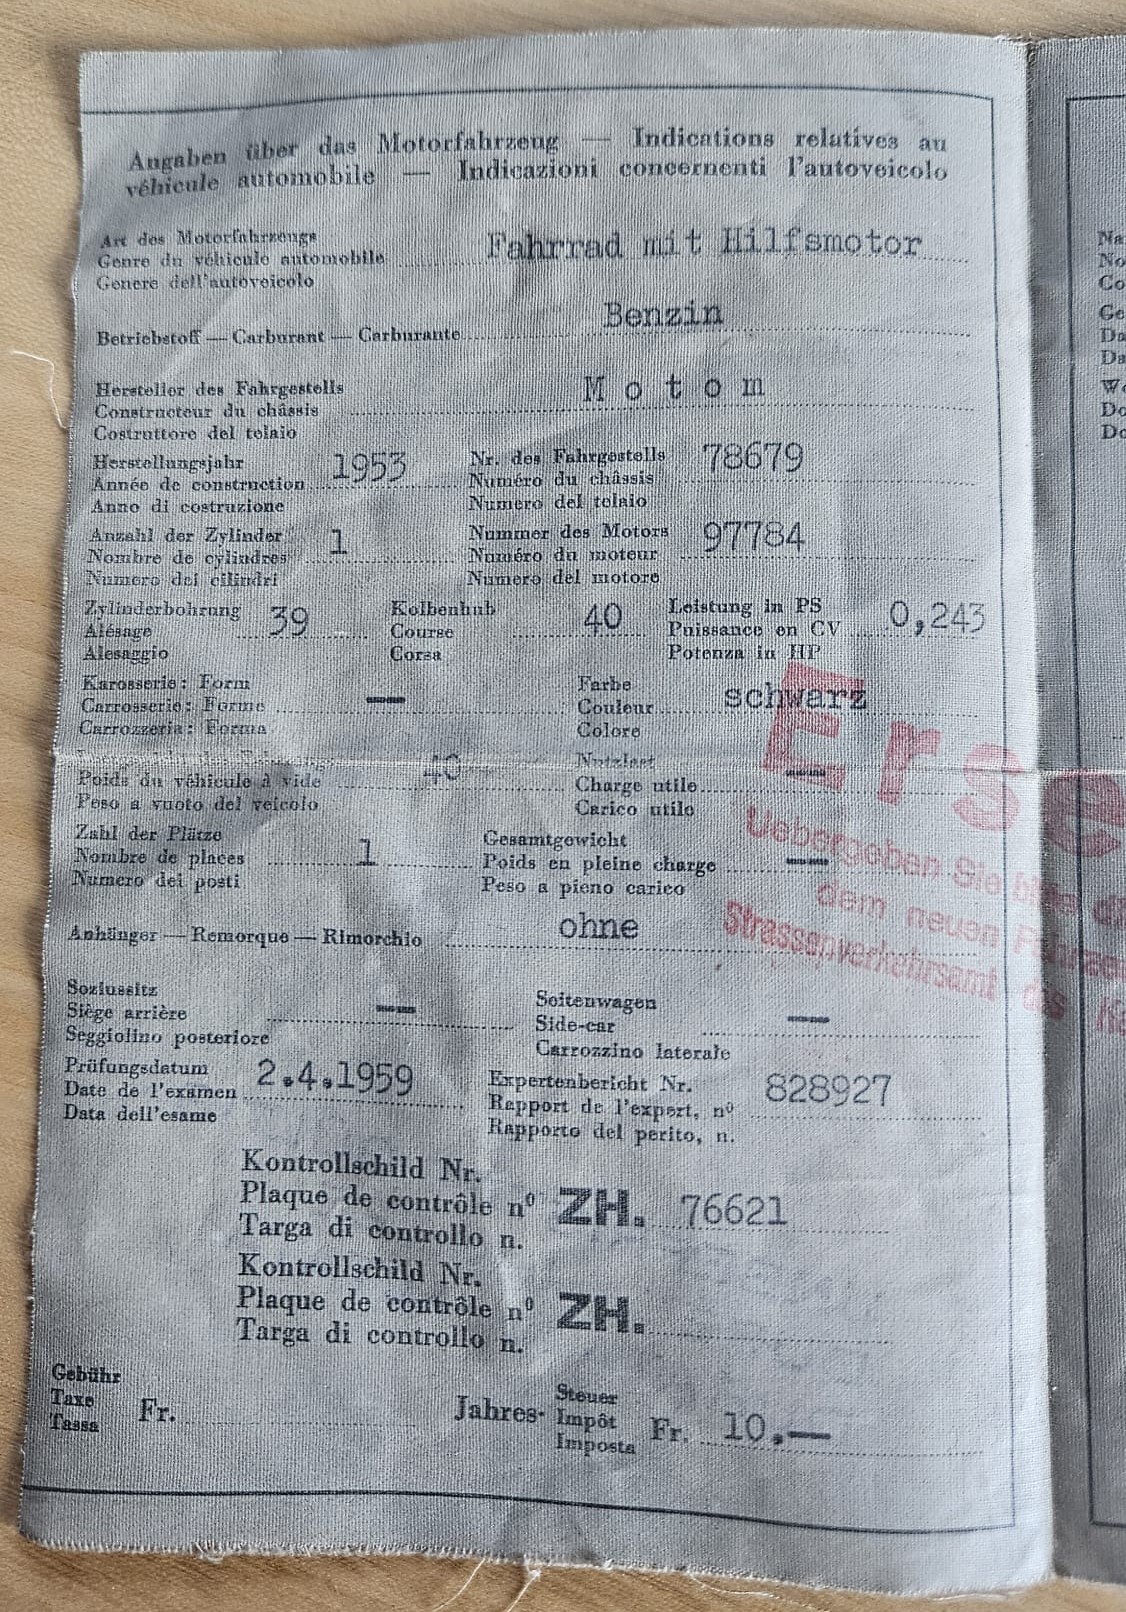 Angaben über das Motorfahrzeug — Indications relatives au
véhicule automobile — Indicazioni concernenti l'autoveicolo
Art des Motorfahrzeugs
Genre du véhicule automobile
Genere dell'autoveicolo
Fahrrad mit Hilfsmotor
Betriebstoff — Carburant — Carburante
Benzin
Hersteller des Fahrgestells
Constructeur du châssis
Costruttore del telaio
Motom
Herstellungsjahr
Année de construction
Anno di costruzione
1953
Nr. des Fahrgestells
Numéro du châssis
Numero del telaio
78679
Anzahl der Zylinder
Nombre de cylindres
Numero dei cilindri
1
Nummer des Motors
Numéro du moteur
Numero del motore
97784
Zylinderbohrung
Alésage
Alesaggio
39
Kolbenhub
Course
Corsa
40
Leistung in PS
Puissance en CV
Potenza in HP
0,243
Karosserie: Form
Carrosserie: Forme
Carrozzeria: Forma
—
Farbe
Couleur
Colore
schwarz
Poids du véhicule à vide
Peso a vuoto del veicolo
40
Nutzlast
Charge utile
Carico utile
—
Zahl der Plätze
Nombre de places
Numero dei posti
1
Gesamtgewicht
Poids en pleine charge
Peso a pieno carico
—
Anhänger — Remorque — Rimorchio
ohne
Soziussitz
Siège arrière
Seggiolino posteriore
—
Seitenwagen
Side-car
Carrozzino laterale
—
Prüfungsdatum
Date de l'examen
Data dell'esame
2.4.1959
Expertenbericht Nr.
Rapport de l'expert, nº
Rapporto del perito, n.
828927
Kontrollschild Nr.
Plaque de contrôle nº
Targa di controllo n.
ZH. 76621
Kontrollschild Nr.
Plaque de contrôle nº
Targa di controllo n.
ZH.
Gebühr
Taxe
Tassa
Fr.
Jahres-
Steuer
Impôt
Imposta
Fr. 10.—
Erse
Uebergeben Sie bitte
dem neuen
Strassenverkehrsamt des
Na
No
Co
Ge
Da
Da
Do
Do